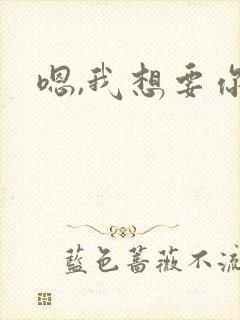 嗯,我想要你
藍色薔薇不流